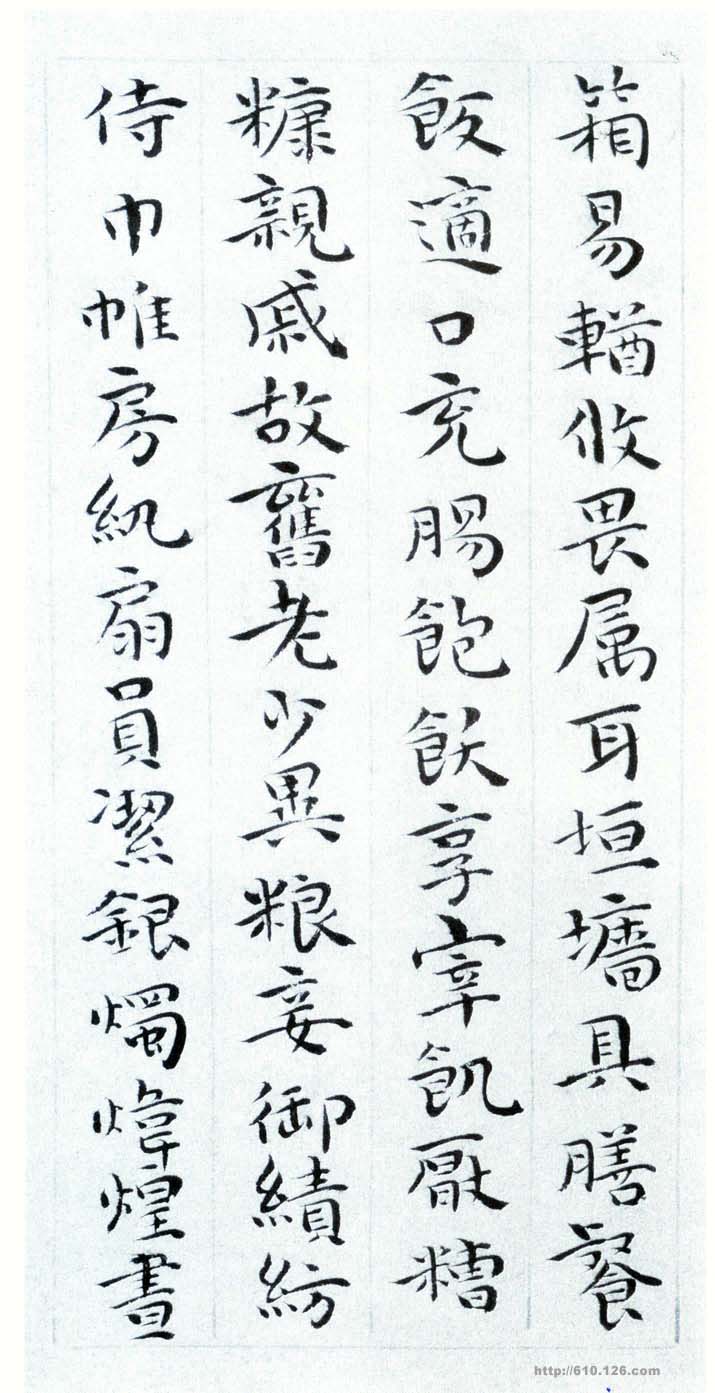 箱易輶攸畏属耳垣墻具膳飱
飯適口充腸飽飫享宰飢厭糟
糠親戚故舊老少異粮妾御績紡
侍巾帷房紈扇員潔銀燭煒煌晝
http://610.126.com